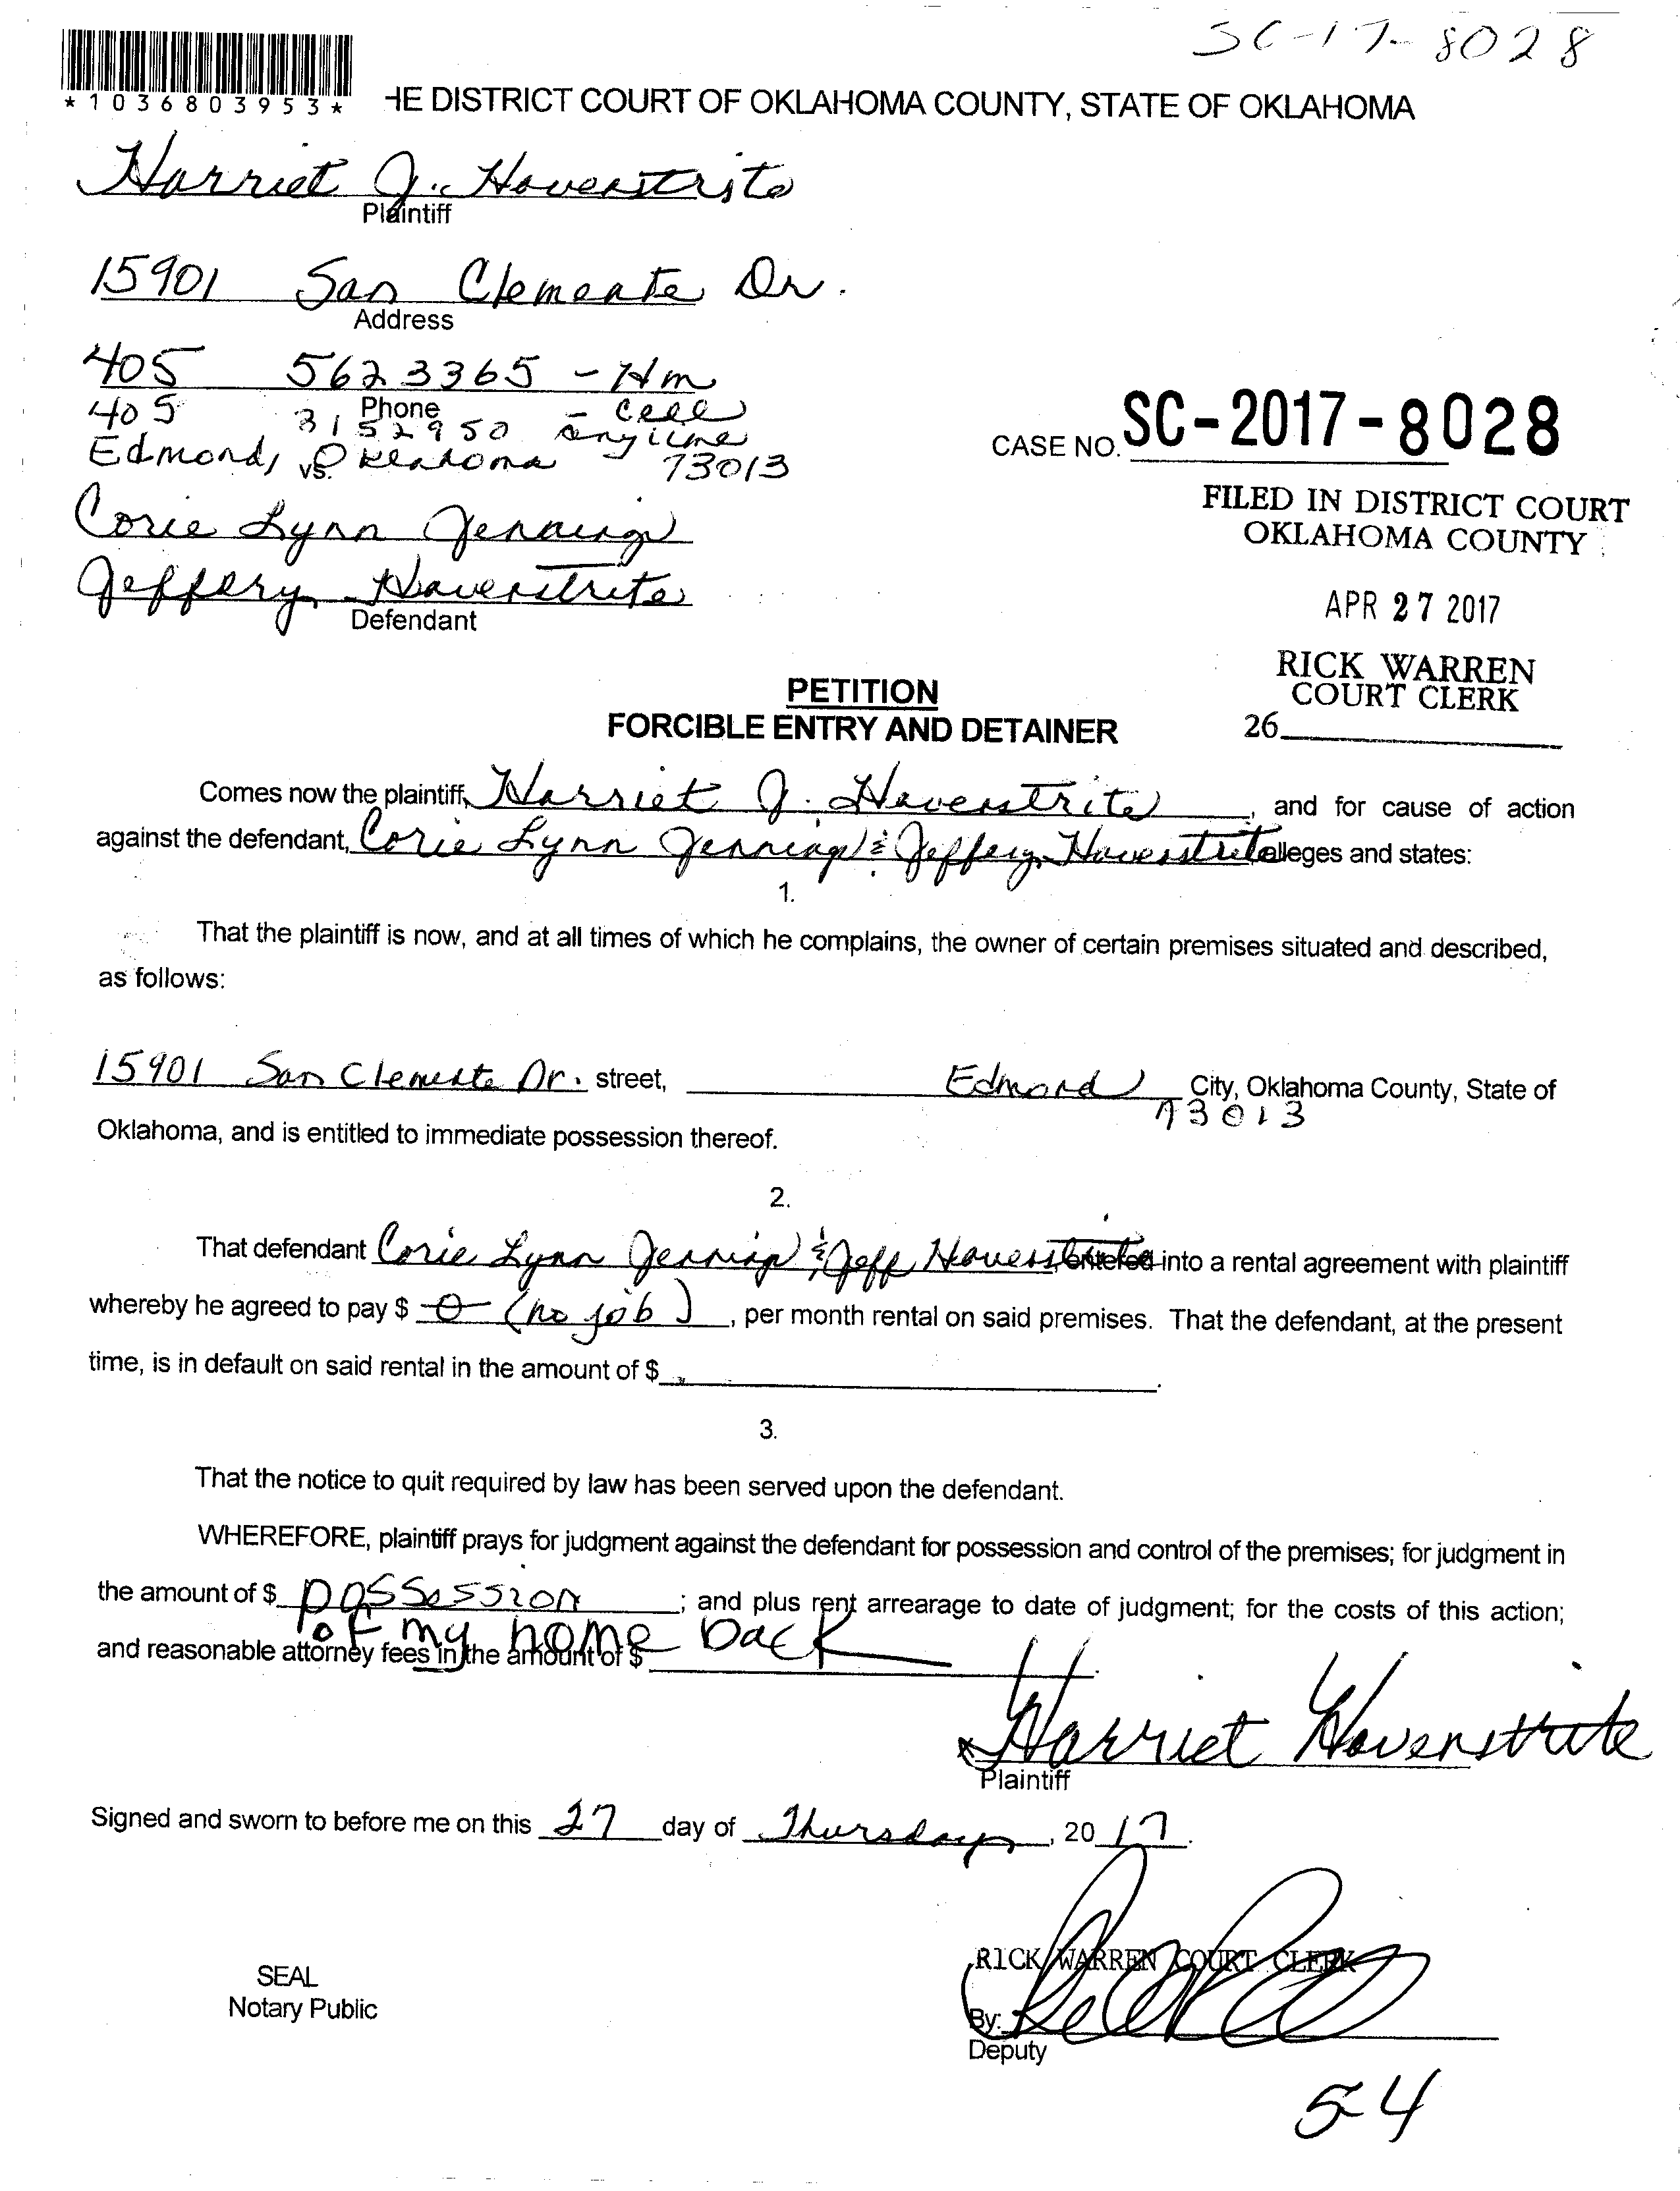 SC-17-8028
*1036803953*
HE DISTRICT COURT OF OKLAHOMA COUNTY, STATE OF OKLAHOMA
Harriet J. Haverstrite
Plaintiff
15901 San Clemente Dr.
Address
405 562 3365 - Hm
Phone
405 315 2950 - cell
anytime
Edmond, Oklahoma 73013
vs.
CASE NO. SC-2017-8028
Corie Lynn Jennings
Jeffery Haverstrite
Defendant
FILED IN DISTRICT COURT
OKLAHOMA COUNTY
APR 27 2017
RICK WARREN
COURT CLERK
26
PETITION
FORCIBLE ENTRY AND DETAINER
Comes now the plaintiff, Harriet J. Haverstrite, and for cause of action
against the defendant, Corie Lynn Jennings & Jeffery Haverstrite alleges and states:
1.
That the plaintiff is now, and at all times of which he complains, the owner of certain premises situated and described,
as follows:
15901 San Clemente Dr. street, Edmond City, Oklahoma County, State of
73013
Oklahoma, and is entitled to immediate possession thereof.
2.
That defendant Corie Lynn Jennings & Jeff Haverstrite, entered into a rental agreement with plaintiff
whereby he agreed to pay $ 0 (no job), per month rental on said premises. That the defendant, at the present
time, is in default on said rental in the amount of $ .
3.
That the notice to quit required by law has been served upon the defendant.
WHEREFORE, plaintiff prays for judgment against the defendant for possession and control of the premises; for judgment in
the amount of $ possession; and plus rent arrearage to date of judgment; for the costs of this action;
of my home back
and reasonable attorney fees in the amount of $ .
x Harriet Haverstrite
Plaintiff
Signed and sworn to before me on this 27 day of Thursday, 2017.
RICK WARREN COURT CLERK
SEAL
Notary Public
By:
Deputy
54